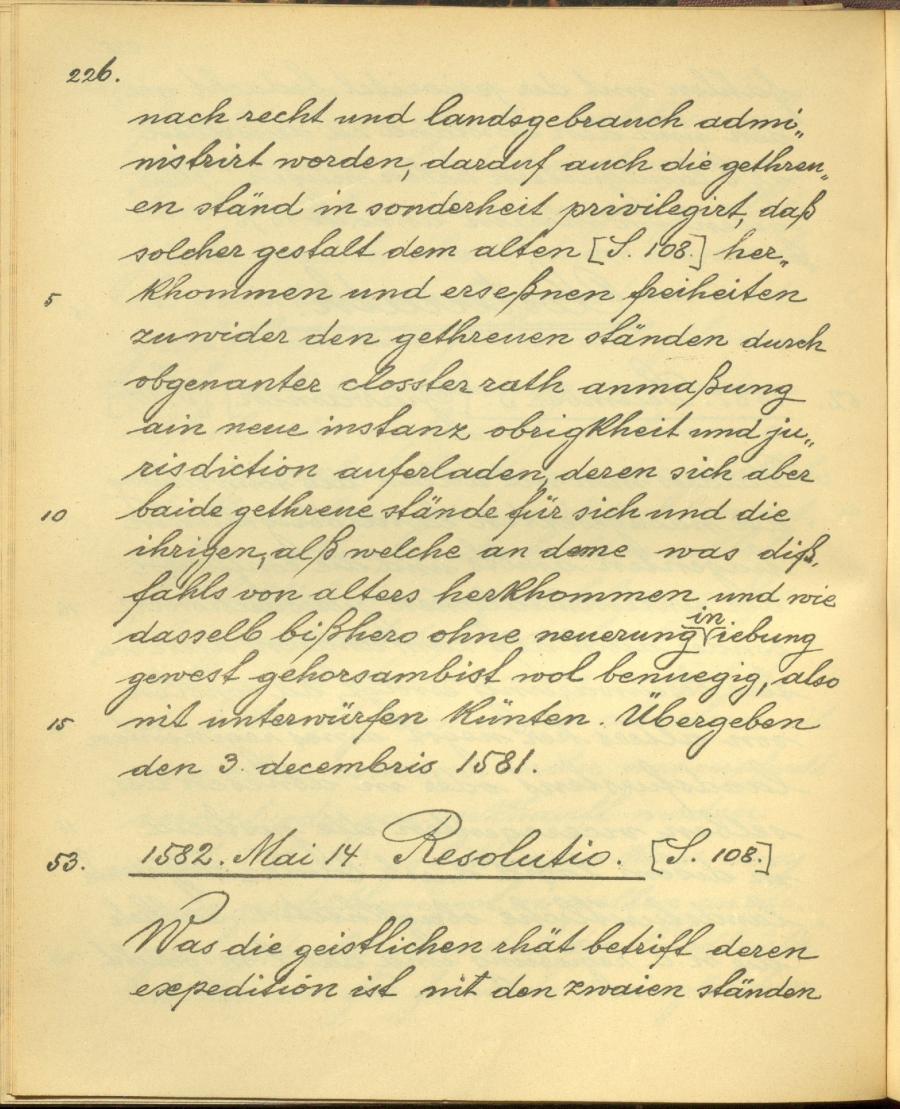 226.
nach recht und landsgebrauch admi„
nistrirt worden, darauf auch die gethreu„
en ständ in sonderheit privilegirt, daß
solcher gestalt dem alten [S. 108.] her„
5 khommen und erseßnen freiheiten
zuwider den gethreuen ständen durch
obgenanter closster rath anmaßung
ain neue instanz obrigkheit und ju„
risdiction auferladen, deren sich aber
10 baide gethreue stände für sich und die
ihrigen, alß welche an deme was diß„
fahls von alters herkhommen und wie
dasselb bißhero ohne neuerung in iebung
gewest gehorsambist wol benuegig, also
15 nit unterwürfen künten. Übergeben
den 3. decembris 1581.
53. 1582. Mai 14. Resolutio. [S. 108.]
Was die geistlichen rhät betrifft deren
expedition ist nit den zwaien ständen